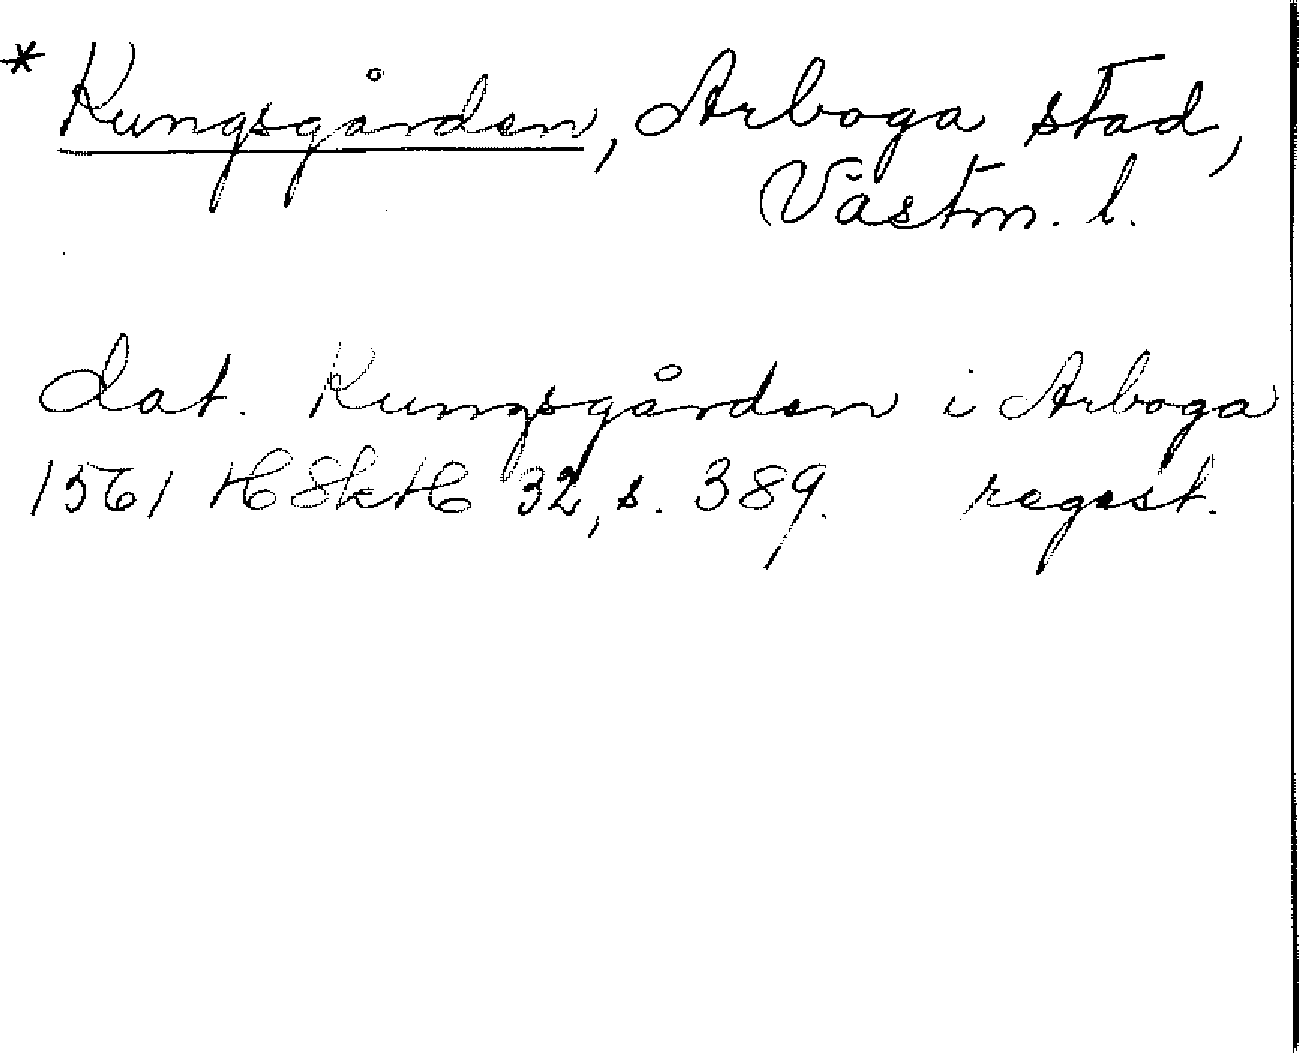 * Kungsgården, Arboga stad,
Västm. l.
dat. Kungsgården i Arboga
1561 HSkH 32, s. 389. regest.